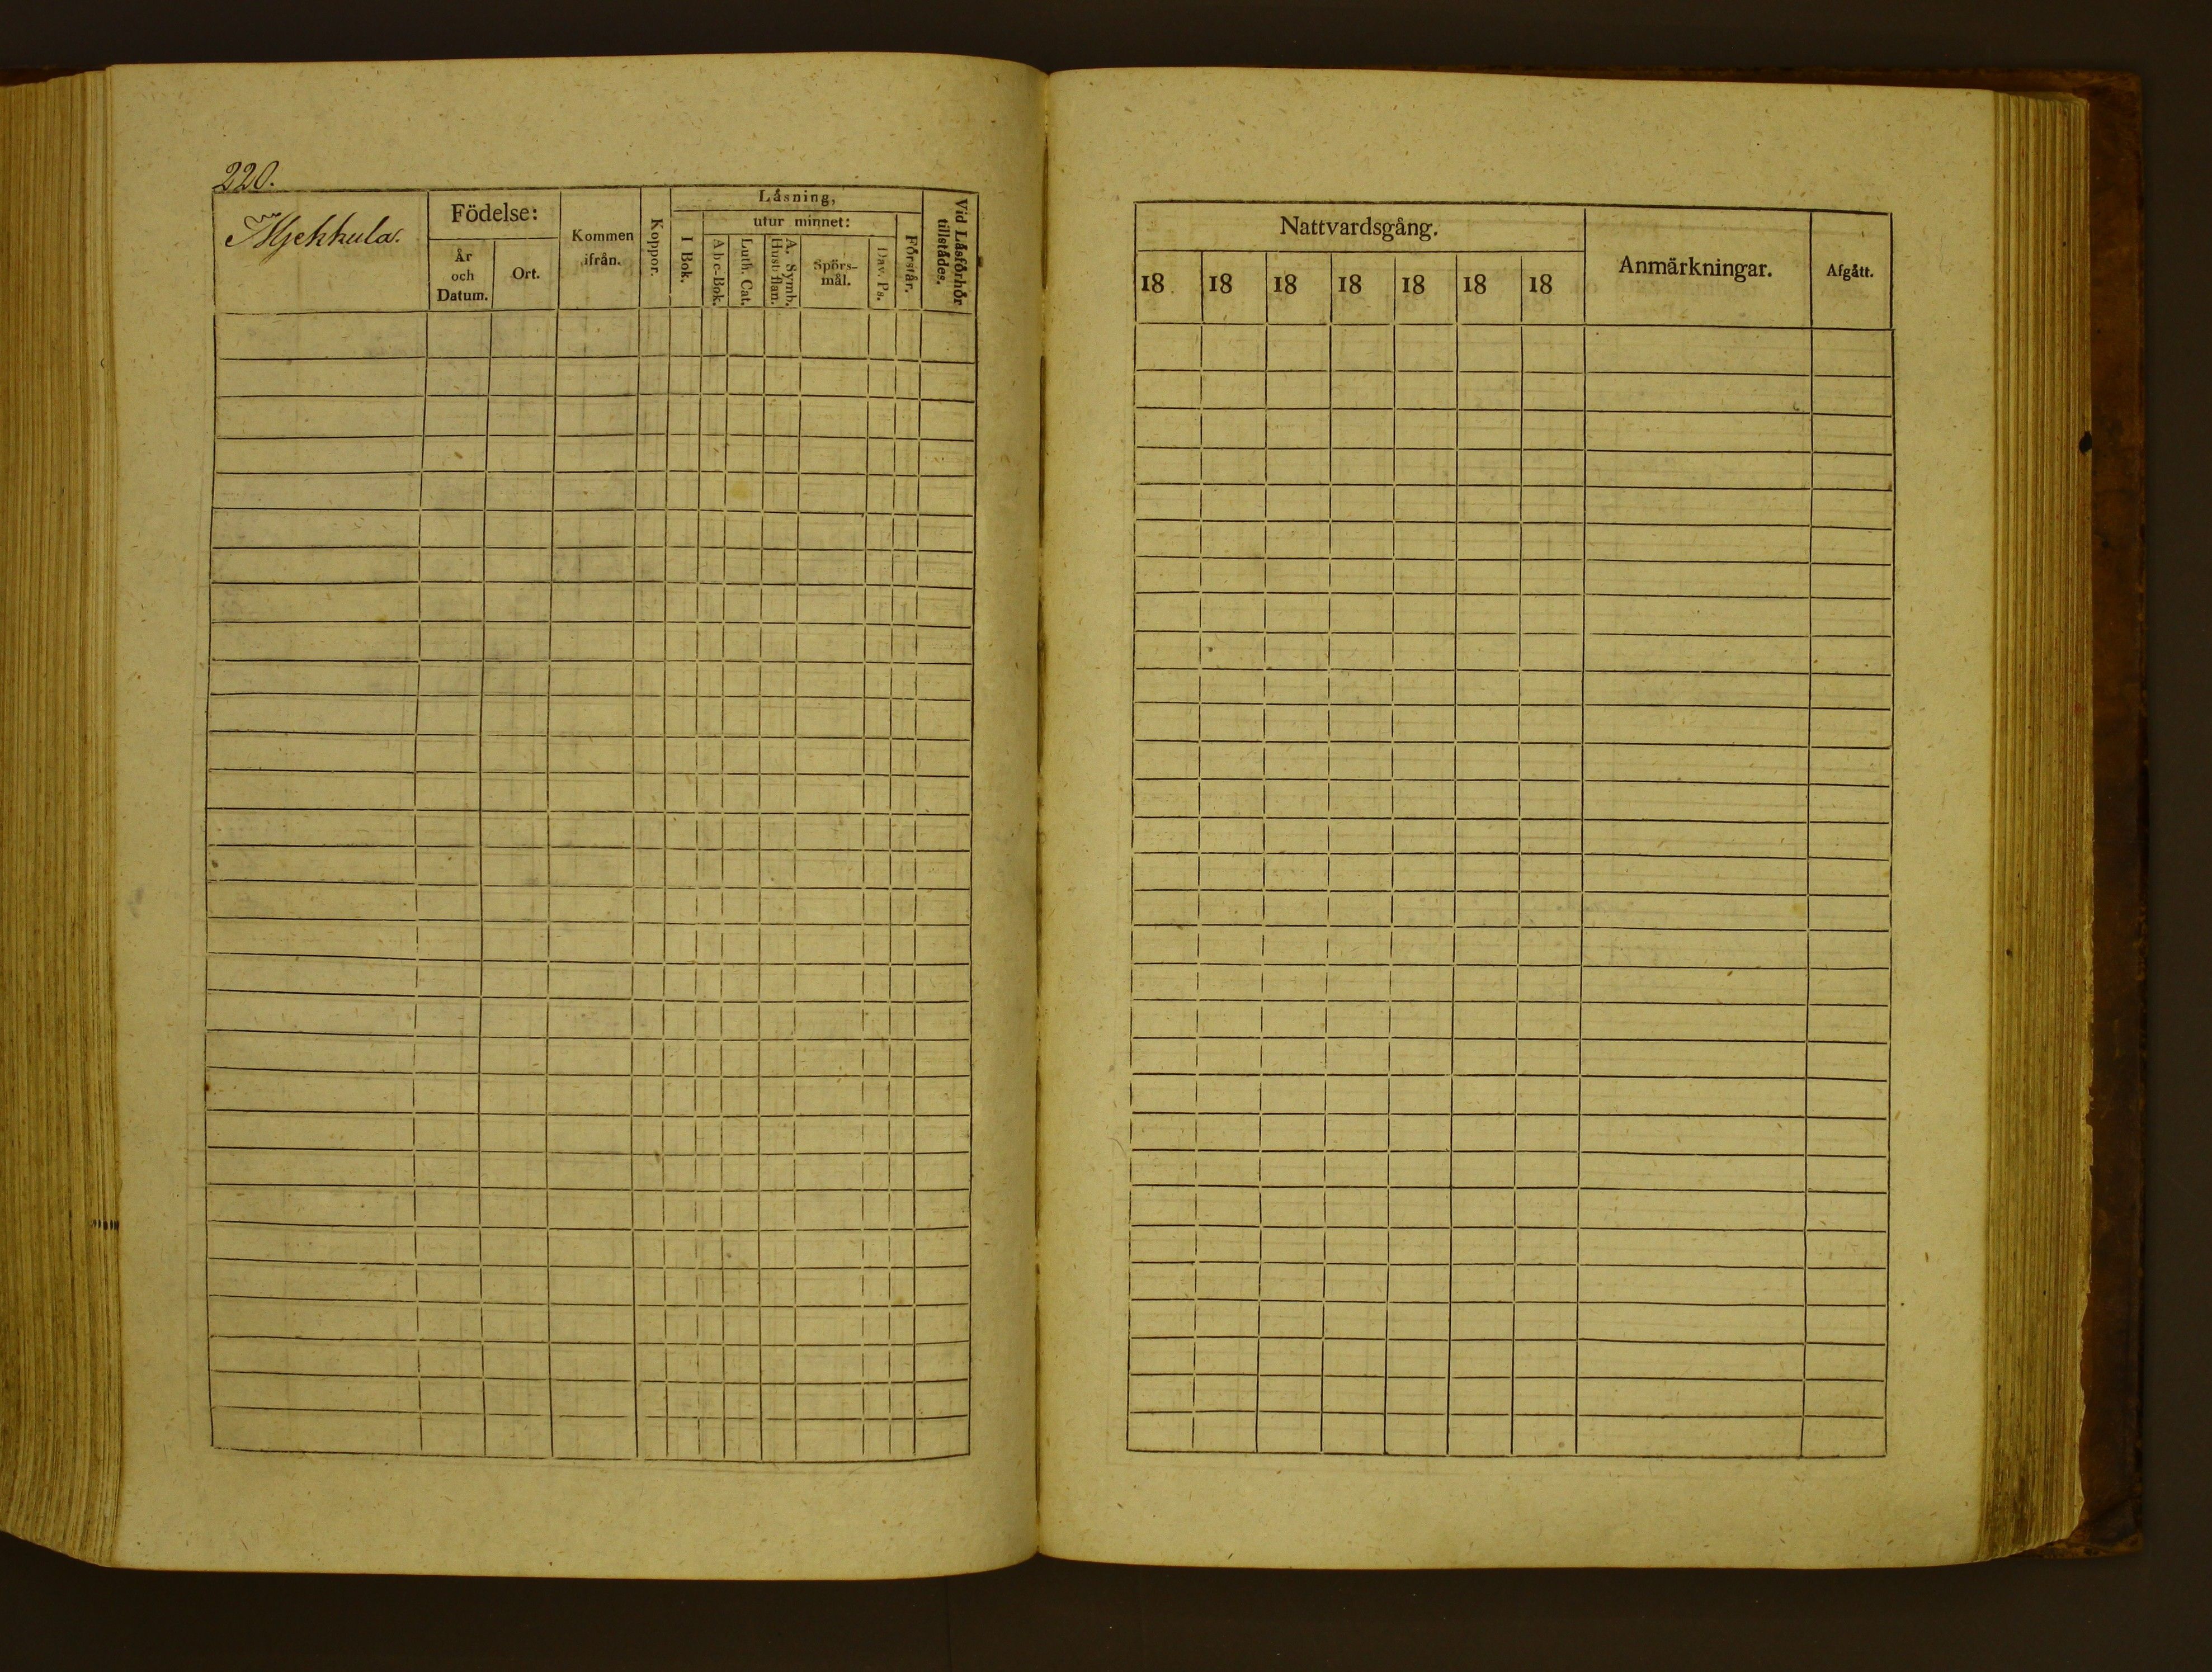 220.
Mjekkula.
Födelse:
År
och
Datum.
Ort.
Kommen
ifrån.
Koppor.
Låsning,
I Bok.
utur minnet:
Abc-Bok.
Luth. Cat.
A. Symb.
Hust: flan.
Spörs-
mål.
Dav. Ps.
Förstår.
Vid Låsförhör
tillstådes.
Nattvardsgång.
18 18 18 18 18 18 18
Anmärkningar.
Afgått.